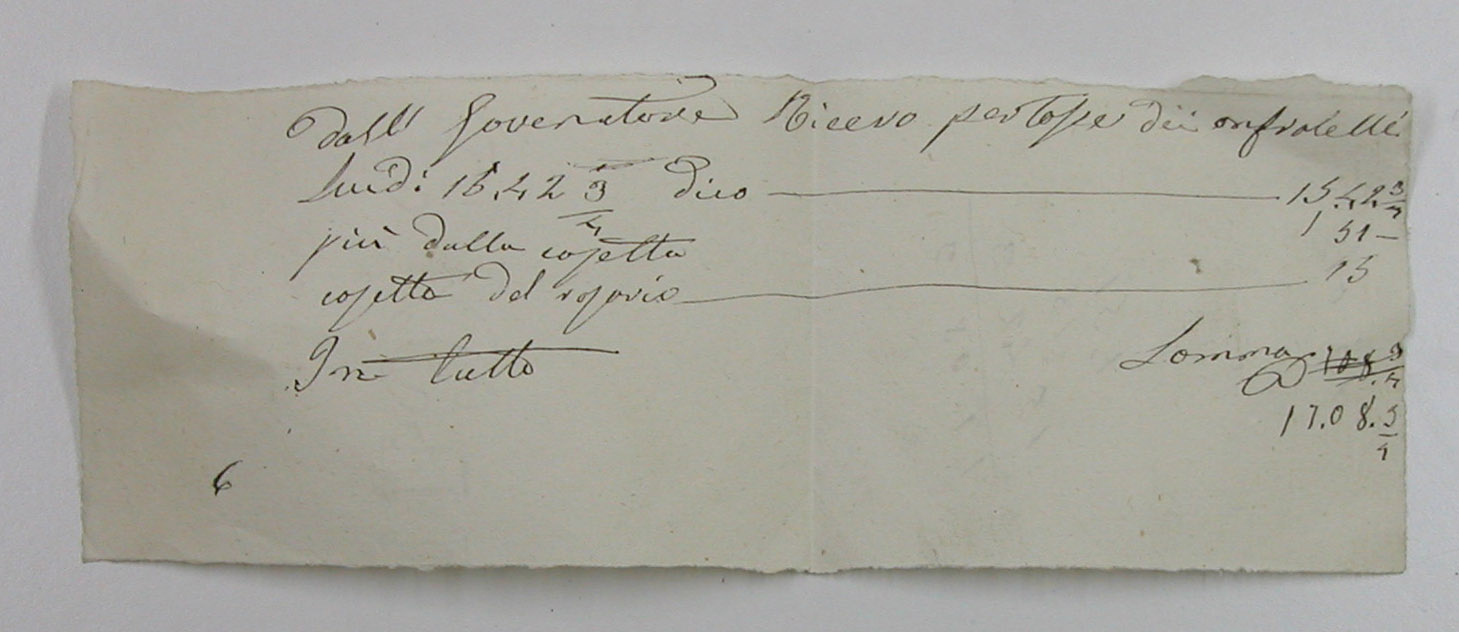 dall Govenatore Ricevo per tosse dei onfratelli
scudi 15.42 3/4 dico 15.42 3/4
più dalla cosetta 1 51 —
cosetta del rosario 15
In tutto Somma 17.08.3/4
6